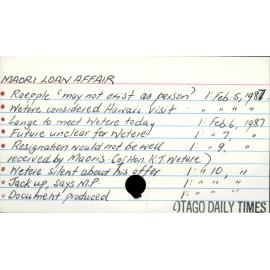 MAORI LOAN AFFAIR
• Raepple "may not exist as person" 1: Feb. 5, 1987.
• Wetere considered Hawaii visit " " " "
• Lange to meet Wetere today 1: Feb. 6, 1987
• Future unclear for Wetere 1: " 7, "
• Resignation would not be well 1: " 9, "
received by Maoris- (Hon. K.T. Wetere)
• Wetere silent about his offer 1: " 10, "
• Jack up, says M.P. 1: " " "
• Document produced 1: " " "
OTAGO DAILY TIMES